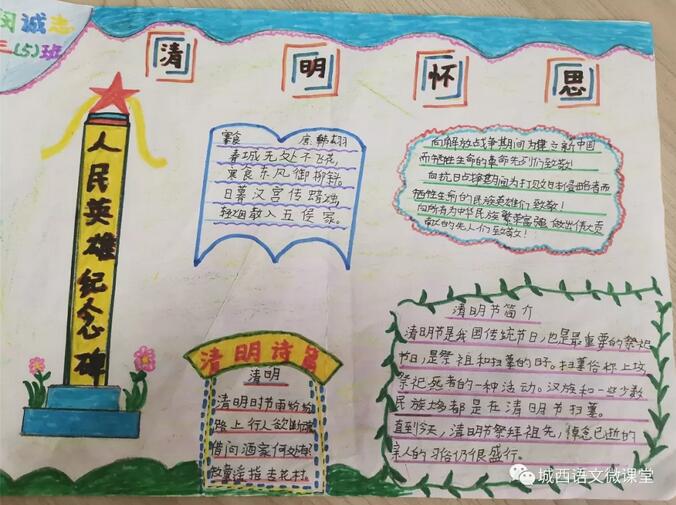 闰诚志
三(5)班
清明怀思
人民英雄纪念碑
寒食 唐 韩翃
春城无处不飞花,
寒食东风御柳斜。
日暮汉宫传蜡烛,
轻烟散入五侯家。
向解放战争期间为建立新中国
而牺牲生命的革命先烈们致敬!
向抗日战争期间为打败日本侵略者而
牺牲生命的民族英雄们致敬!
向所有为中华民族繁荣富强做出伟大贡
献的先人们致敬!
清明诗篇
清明
清明时节雨纷纷
路上行人欲断魂
借问酒家何处有
牧童遥指杏花村。
清明节简介
清明节是我国传统节日,也是最重要的祭祀
节日,是祭祖和扫墓的日子。扫墓俗称上坟,
祭祀死者的一种活动。汉族和一些少数
民族大多都是在清明节扫墓。
直到今天,清明节祭拜祖先,悼念已逝的
亲人的习俗仍很盛行。
城西语文微课堂